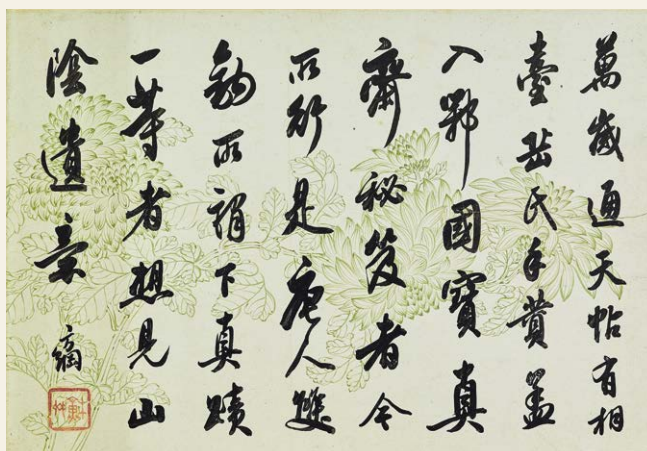 萬歲通天帖有相
臺岳氏手贊蓋
入鄂國寶真
齋秘笈者今
所行是唐人雙
鈎所謂下真蹟
一等者想見山
陰遺意